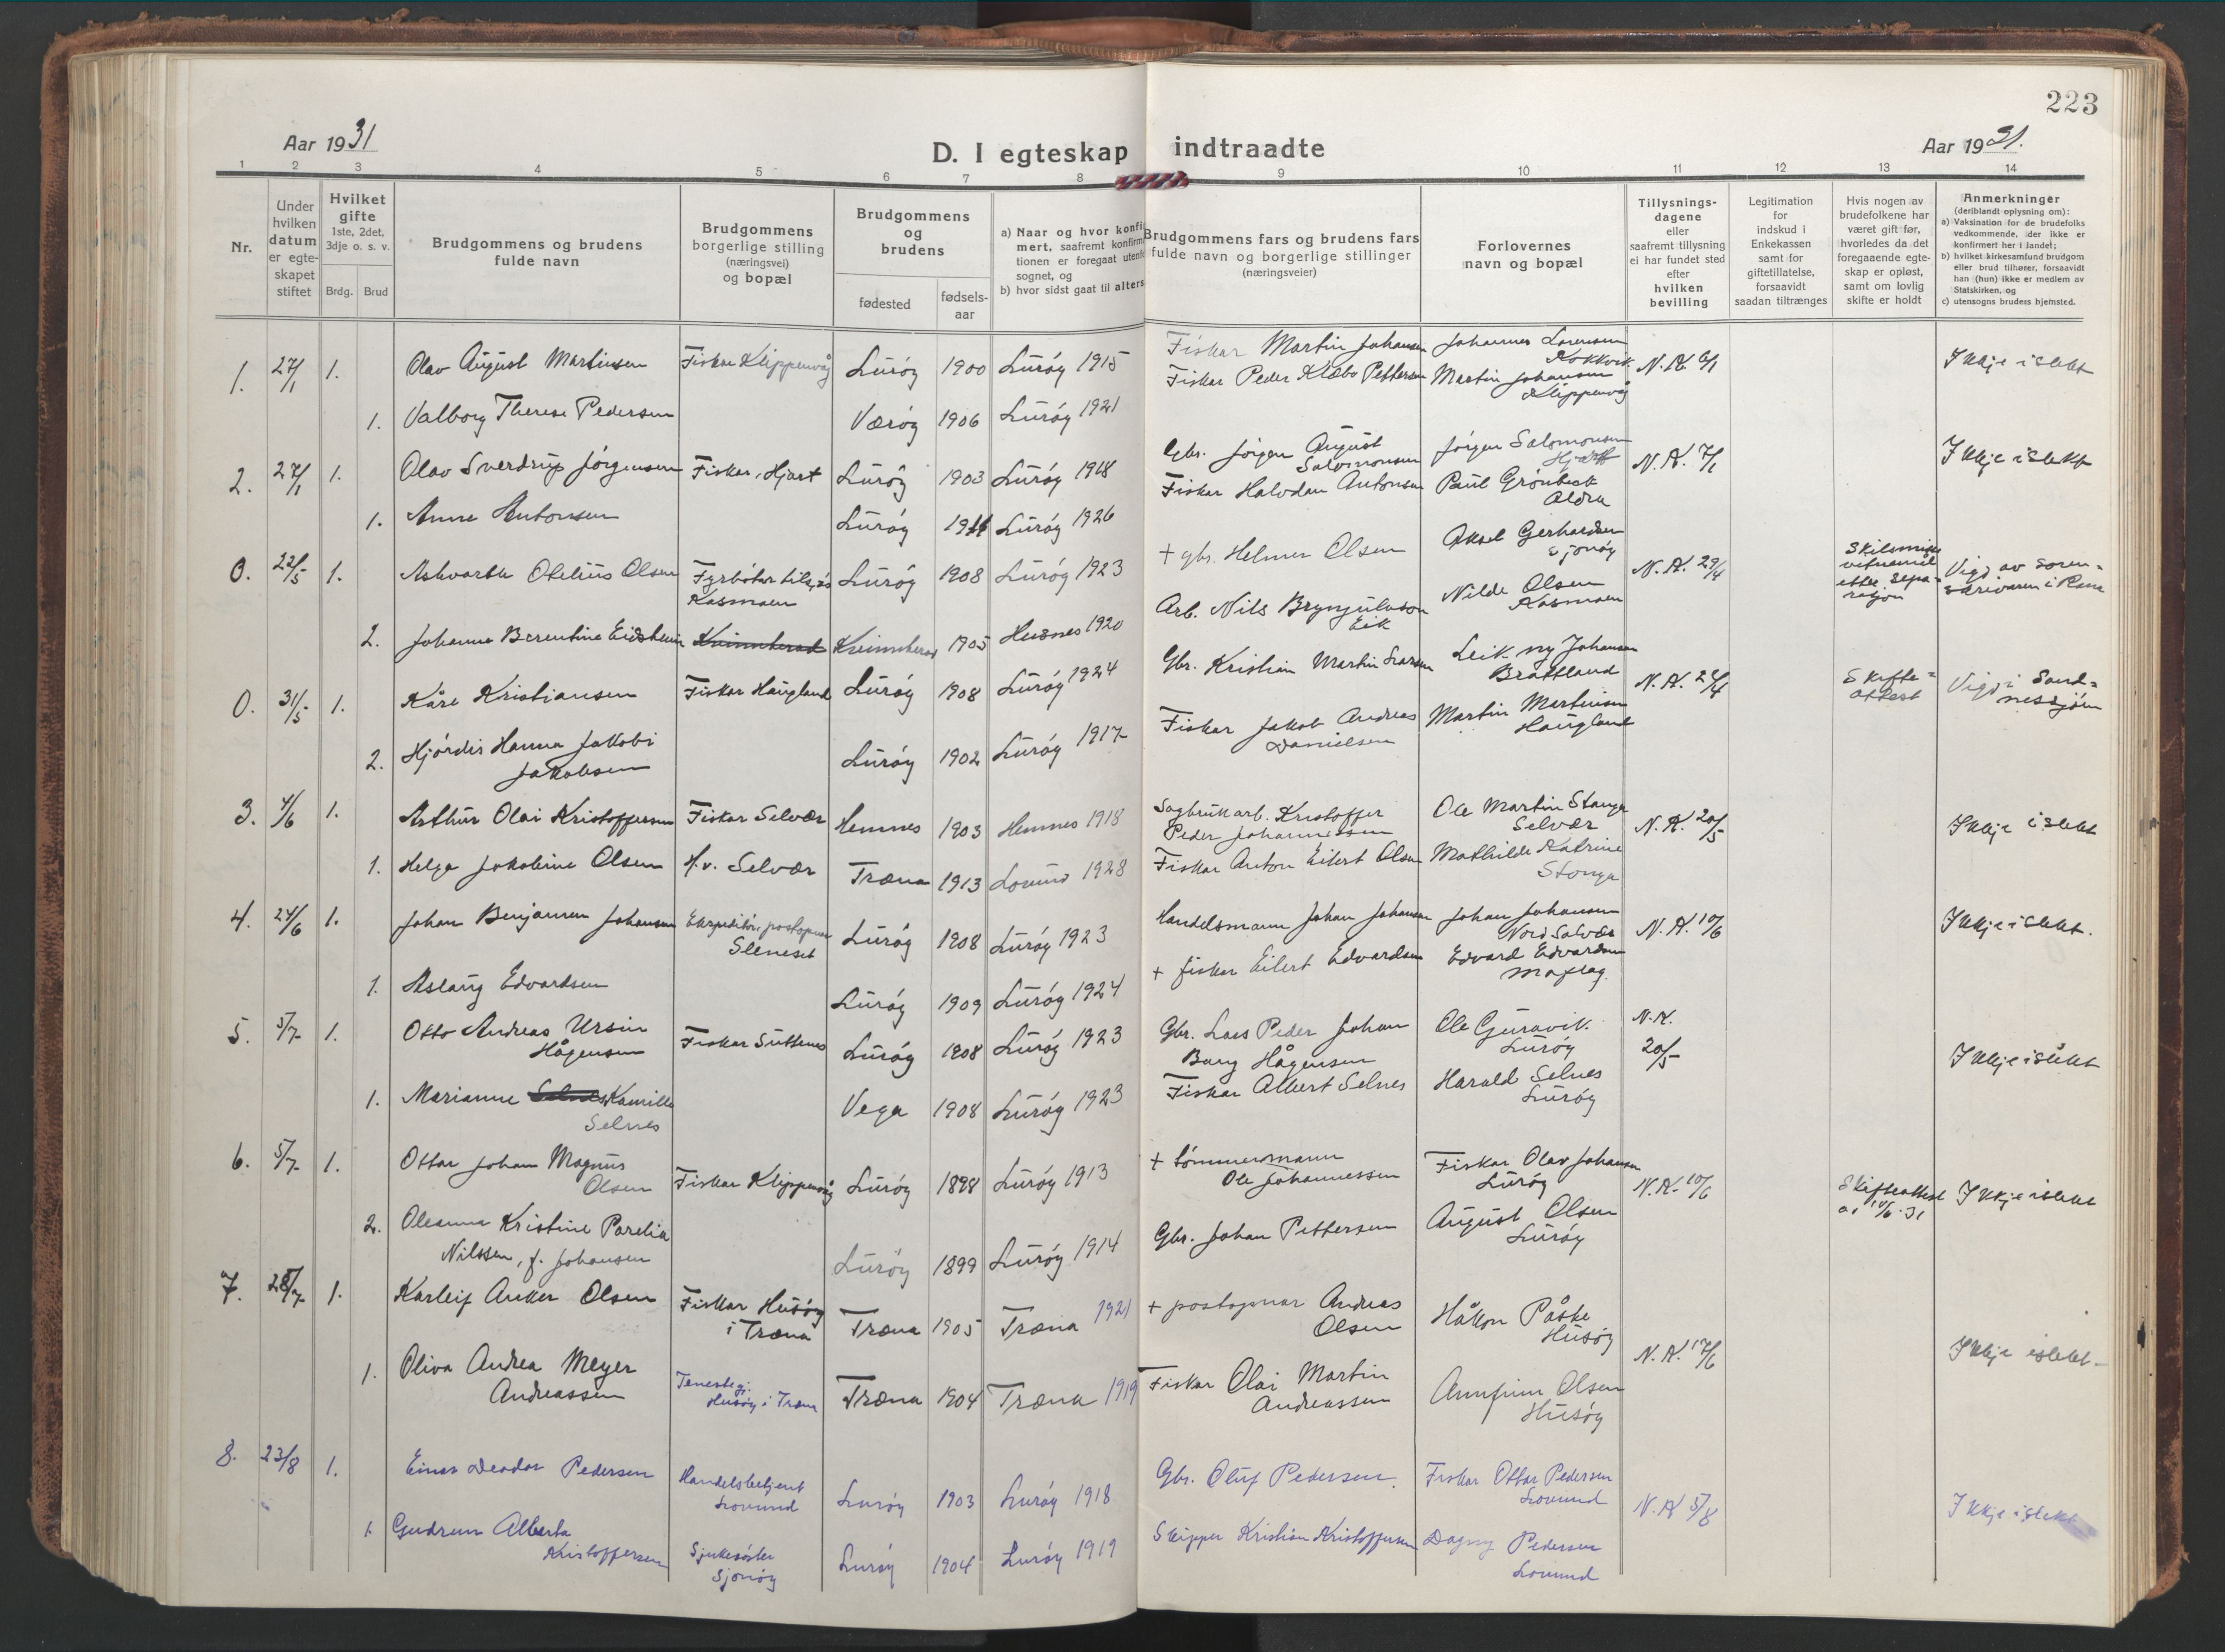 223
Aar 1931
D. I egteskap indtraadte
Aar 1931.
1 2 3 4 5 6 7 8 9 10 11 12 13 14
Nr.
Under hvilken datum er egteskapet stiftet
Hvilket gifte 1ste, 2det, 3dje o. s. v.
Brdg. Brud
Brudgommens og brudens fulde navn
Brudgommens borgerlige stilling (næringsvei) og bopæl
Brudgommens og brudens
fødested
fødsels-aar
a) Naar og hvor konfirmert, saafremt konfirmationen er foregaat utenfor sognet, og
b) hvor sidst gaat til alters
Brudgommens fars og brudens fars fulde navn og borgerlige stillinger (næringsveier)
Forlovernes navn og bopæl
Tillysningsdagene eller saafremt tillysning ei har fundet sted efter hvilken bevilling
Legitimation for indskud i Enkekassen samt for giftetillatelse, forsaavidt saadan tiltrænges
Hvis nogen av brudefolkene har været gift før, hvorledes da det foregaaende egteskap er opløst, samt om lovlig skifte er holdt
Anmerkninger
(deriblandt oplysning om):
a) Vaksination for de brudefolks vedkommende, der ikke er konfirmert her i landet;
b) hvilket kirkesamfund brudgom eller brud tilhører, forsaavidt han (hun) ikke er medlem av Statskirken, og
c) utensogns bruders hjemsted.
1. 27/1 1. Olav August Martinsen Fiskar Klippenvåg Lurøy 1900 Lurøy 1915 Fiskar Martin Johansen Johannes Lorensen Kokkvik. N.K. 6/1 Ikkje i slekt
1. Valborg Therese Pedersen Værøy 1906 Lurøy 1921 Fiskar Peder Klæbo Pettersen Martin Johansen Klippenvåg
2. 27/1 1. Olav Sverdrup Jørgensen Fiskar, Hjart Lurøy 1903 Lurøy 1918 Gbr. Jørgen August Salomonsen Jørgen Salomonsen Hjart N.K. 7/1 Ikkje i slekt
1. Anne Antonsen Lurøy 1911 Lurøy 1926 Fiskar Halvdan Antonsen Paul Grönbeck Aldra
0. 22/5 1. Ashvarth Otelius Olsen Kasmoen Lurøy 1908 Lurøy 1923 + gbr. Helmer Olsen Aksel Gerhardsen Sjonøy N.K. 29/4 Skilsmisse etter separasjon Vigj av sorenskrivaren i Rana
2. Johanne Berentine Eidsheim Kvinnherad 1905 Husnes 1920 Arb. Nils Brynjulvson Eik Nilde Olsen Kasmoen
0. 31/5 1. Kåre Kristiansen Fiskar Haugland Lurøy 1908 Lurøy 1924 Gbr. Kristian Martin Larsen Leik ny Johansen Brattland N.K. 22/4 Skifteattest Vigj i Sandnessjøen
2. Hjørdis Hanna Jakobi Jakobsen Lurøy 1902 Lurøy 1917 Fiskar Jakob Andreas Danielsen Martin Martinsen Haugland
3. 4/6 1. Arthur Olai Kristoffersen Fiskar Selvær Hemnes 1903 Hemnes 1918 Sagbrukarb. Kristoffer Peder Johannessen Ole Martin Stanga Selvær N.K. 20/5 Ikkje i slekt
1. Helga Jakobine Olsen H.v. Selvær Træna 1913 Lovund 1928 Fiskar Anton Eilert Olsen Mathilde Katrine Stonga
4. 24/6 1. Johan Benjamen Johansen Ekspeditör, postopnar Sleneset Lurøy 1908 Lurøy 1923 Handelsmann Johan Johansen Johan Johansen Nord Solvær N.K. 10/6 Ikkje i slekt.
1. Aslaug Edvardsen Lurøy 1909 Lurøy 1924 + fiskar Eilert Edvardsen Edvard Edvardsen
5. 5/7 1. Otto Andreas Ursin Hågensen Fiskar Lurøy 1908 Lurøy 1923 Gbr. Lars Peder Johan Bang Hågensen Ole Guravik Lurøy N.K. 20/5 Ikkje i slekt
1. Marianne Kamille Selnes Vega 1908 Lurøy 1923 Fiskar Albert Selnes Harald Selnes Lurøy
6. 5/7 1. Ottar Johan Magnus Olsen Fiskar Klippenvåg Lurøy 1898 Lurøy 1913 + tömmermann Ole Johannessen Fiskar Olav Johansen Lurøy N.K. 10/6 Skifteattest av 10/6-31 Ikkje i slekt
2. Oleanna Kristine Parelia Nilssen, f. Johansen Lurøy 1899 Lurøy 1914 Gbr. Johan Pettersen August Olsen Lurøy
7. 28/7 1. Karleif Anker Olsen Fiskar Husøy i Træna Træna 1905 Træna 1921 + postopnar Andreas Olsen Håkon Påske Husøy N.K. 17/6 Ikkje i slekt
1. Oliva Andrea Meyer Andreassen Tenestegj. Husøy i Træna Træna 1904 Træna 1919 Fiskar Olai Martin Andreassen Annfinn Olsen Husøy
8. 23/8 1. Einar Deodor Pedersen Handelsbetjent Lovund Lurøy 1903 Lurøy 1918 Gbr. Oluf Pedersen. Fiskar Ottar Pedersen Lovund N.K 5/8 Ikkje i slekt
1. Gudrun Alberta Kristoffersen Sjukesöster Sjonøy Lurøy 1904 Lurøy 1919 Skipper Kristian Kristoffersen Dagny Pedersen Lovund